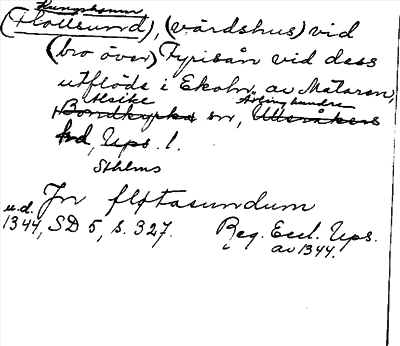 Kungshamn
(Flottsund), (värdshus) vid
(bro över) Fyrisån vid dess
utflöde i Ekoln av Mälaren,
Alsike Ärlinghundra
Bondkyrko sn, Ulleråkers
hd, Ups. l.
Sthlms
In fløtasundum
u.d.
1344, SD 5, s. 327. Reg. Eccl. Ups.
i av 1344.